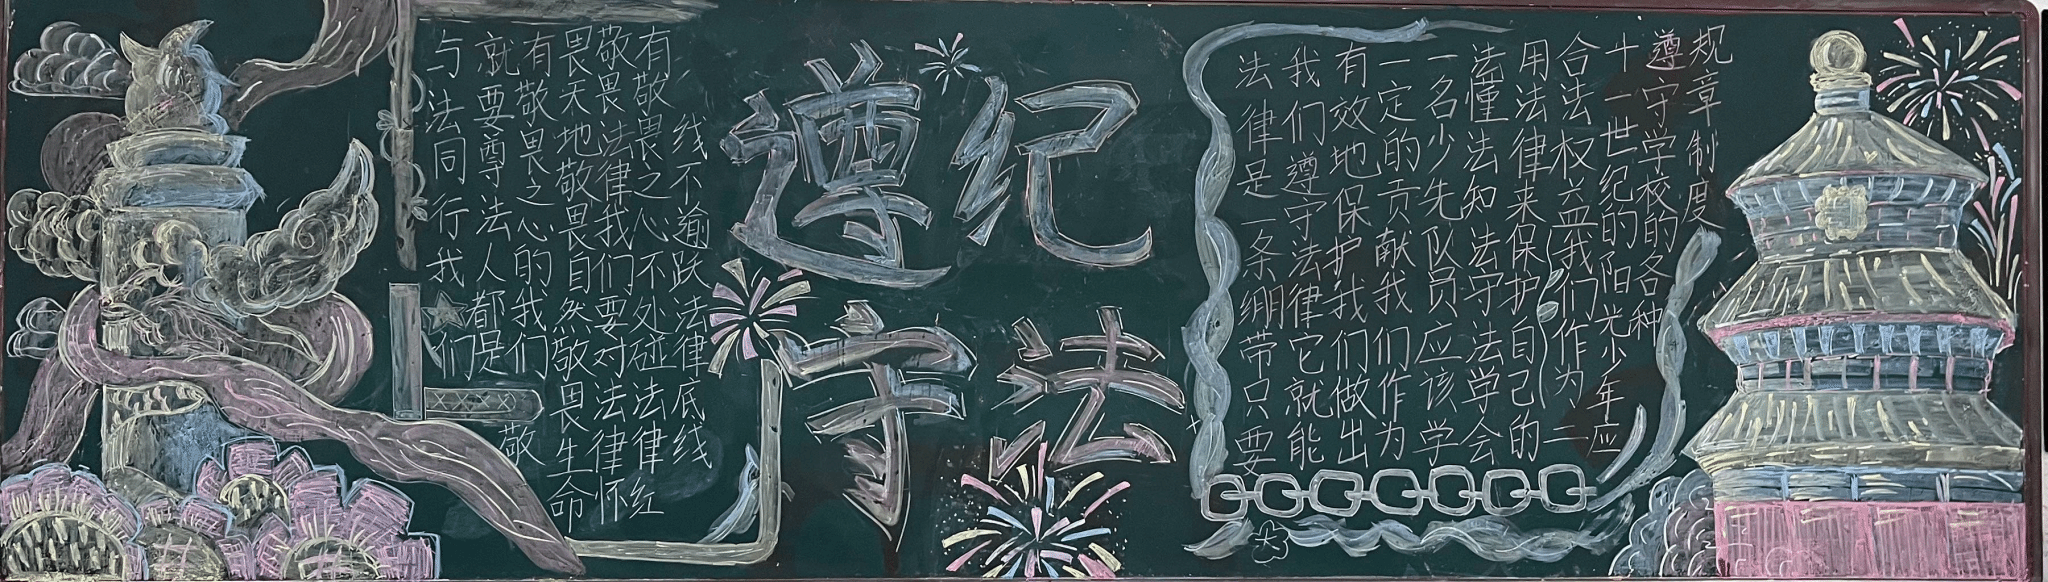 与法同行我们
就要尊法人都是
有敬畏之心的我们敬
畏天地敬畏自然敬畏生命
敬畏法律我们要对法律怀
有敬畏之心不处碰法律红
线不逾跃法律底线
遵纪
守法
法律是一条绷带只要
我们遵守法律它就能
有效地保护我们做出
一定的贡献我们作为
一名少先队员应该学
法懂法知法守法学会
用法律来保护自己的
合法权益我们作为二
十一世纪的阳光少年应
遵守学校的各种
规章制度